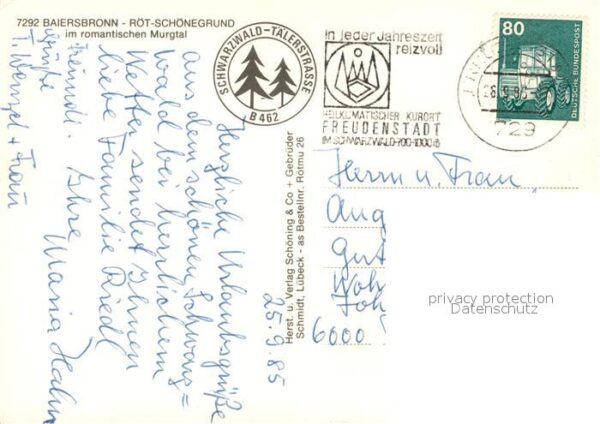 7292 BAIERSBRONN - RÖT-SCHÖNEGRUND
im romantischen Murgtal
SCHWARZWALD-TÄLERSTRASSE
B 462
In jeder Jahreszeit
reizvoll
HEILKLIMATISCHER KURORT
FREUDENSTADT
IM SCHWARZWALD 700-1000 m
80
DEUTSCHE BUNDESPOST
729
25.9.85
Herzliche Urlaubsgrüße
aus dem schönen Schwarz=
wald bei herrlichem
Wetter sendet Ihnen
liebe Familie Riedl
Ihre Maria Hahn
Freundl.
Grüße
Herst. u. Verlag Schöning & Co + Gebrüder
Schmidt, Lübeck - as Bestellnr. Rötmu 26
Herrn u. Frau
Aug
Gut
Woh
Joh
6000
privacy protection
Datenschutz